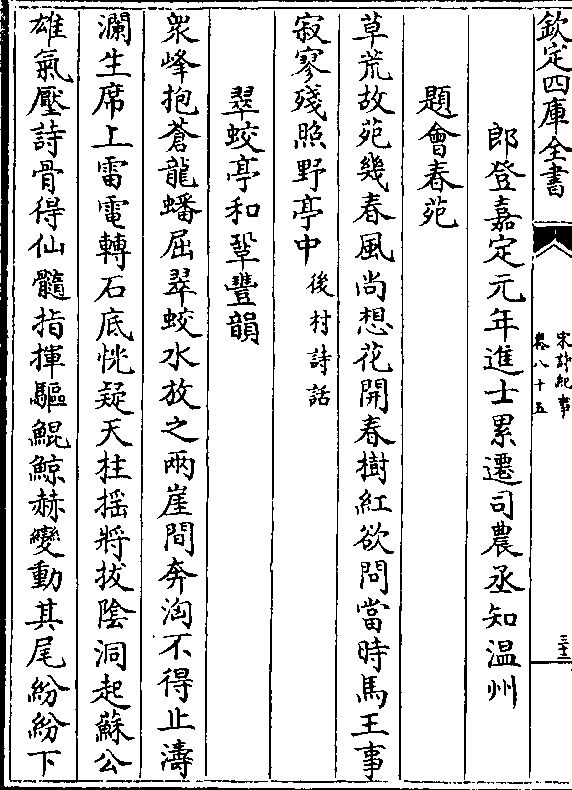 欽定四庫全書
宋詩紀事
卷八十五
三十三
郎登嘉定元年進士累遷司農丞知温州
題會春苑
草荒故苑幾春風尚想花開春樹紅欲問當時馬王事
寂寥殘照野亭中後村詩話
翠蛟亭和鞏豐韻
衆峰抱蒼龍蟠屈翠蛟水放之兩崖間奔淘不得止濤
瀾生席上雷電轉石底恍疑天柱揺將拔陰洞起蘇公
雄氣壓詩骨得仙髓指揮驅鯤鯨赫變動其尾紛紛下